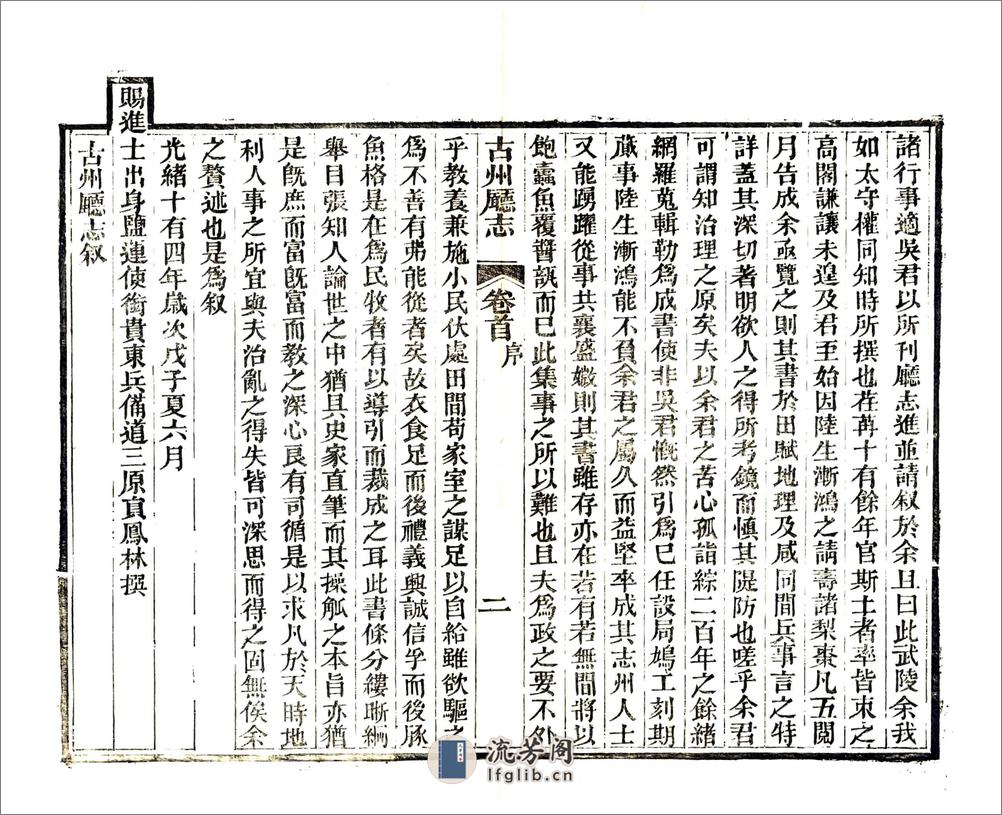 諸行事適吳君以所刊廳志進並請叙於余且曰此武陵余我
如太守權同知時所撰也荏苒十有餘年官斯土者率皆束之
高閣謙讓未遑及君至始因陸生漸鴻之請壽諸梨棗凡五閱
月告成余亟覽之則其書於田賦地理及咸同間兵事言之特
詳蓋其深切著明欲人之得所考鏡而愼其隄防也嗟乎余君
可謂知治理之原矣夫以余君之苦心孤詣綜二百年之餘緒
網羅蒐輯勒爲成書使非吳君慨然引爲己任設局鳩工刻期
蕆事陸生漸鴻能不負余君之屬久而益堅卒成其志州人士
又能踴躍從事共襄盛媺則其書雖存亦在若有若無間將以
飽蠹魚覆醬瓿而已此集事之所以難也且夫爲政之要不外
古州廳志 卷首 序 二
乎教養兼施小民伏處田間苟家室之謀足以自給雖欲驅之
爲不善有弗能從者矣故衣食足而後禮義興誠信孚而後豚
魚格是在爲民牧者有以導引而裁成之耳此書條分縷晰綱
舉目張知人論世之中猶具史家直筆而其操觚之本旨亦猶
是旣庶而富旣富而教之深心良有司循是以求凡於天時地
利人事之所宜與夫治亂之得失皆可深思而得之固無俟余
之贅述也是爲叙
光緒十有四年歲次戊子夏六月
賜進士出身鹽運使銜貴東兵備道三原員鳳林撰
古州廳志叙
流芳阁
lfglib.cn